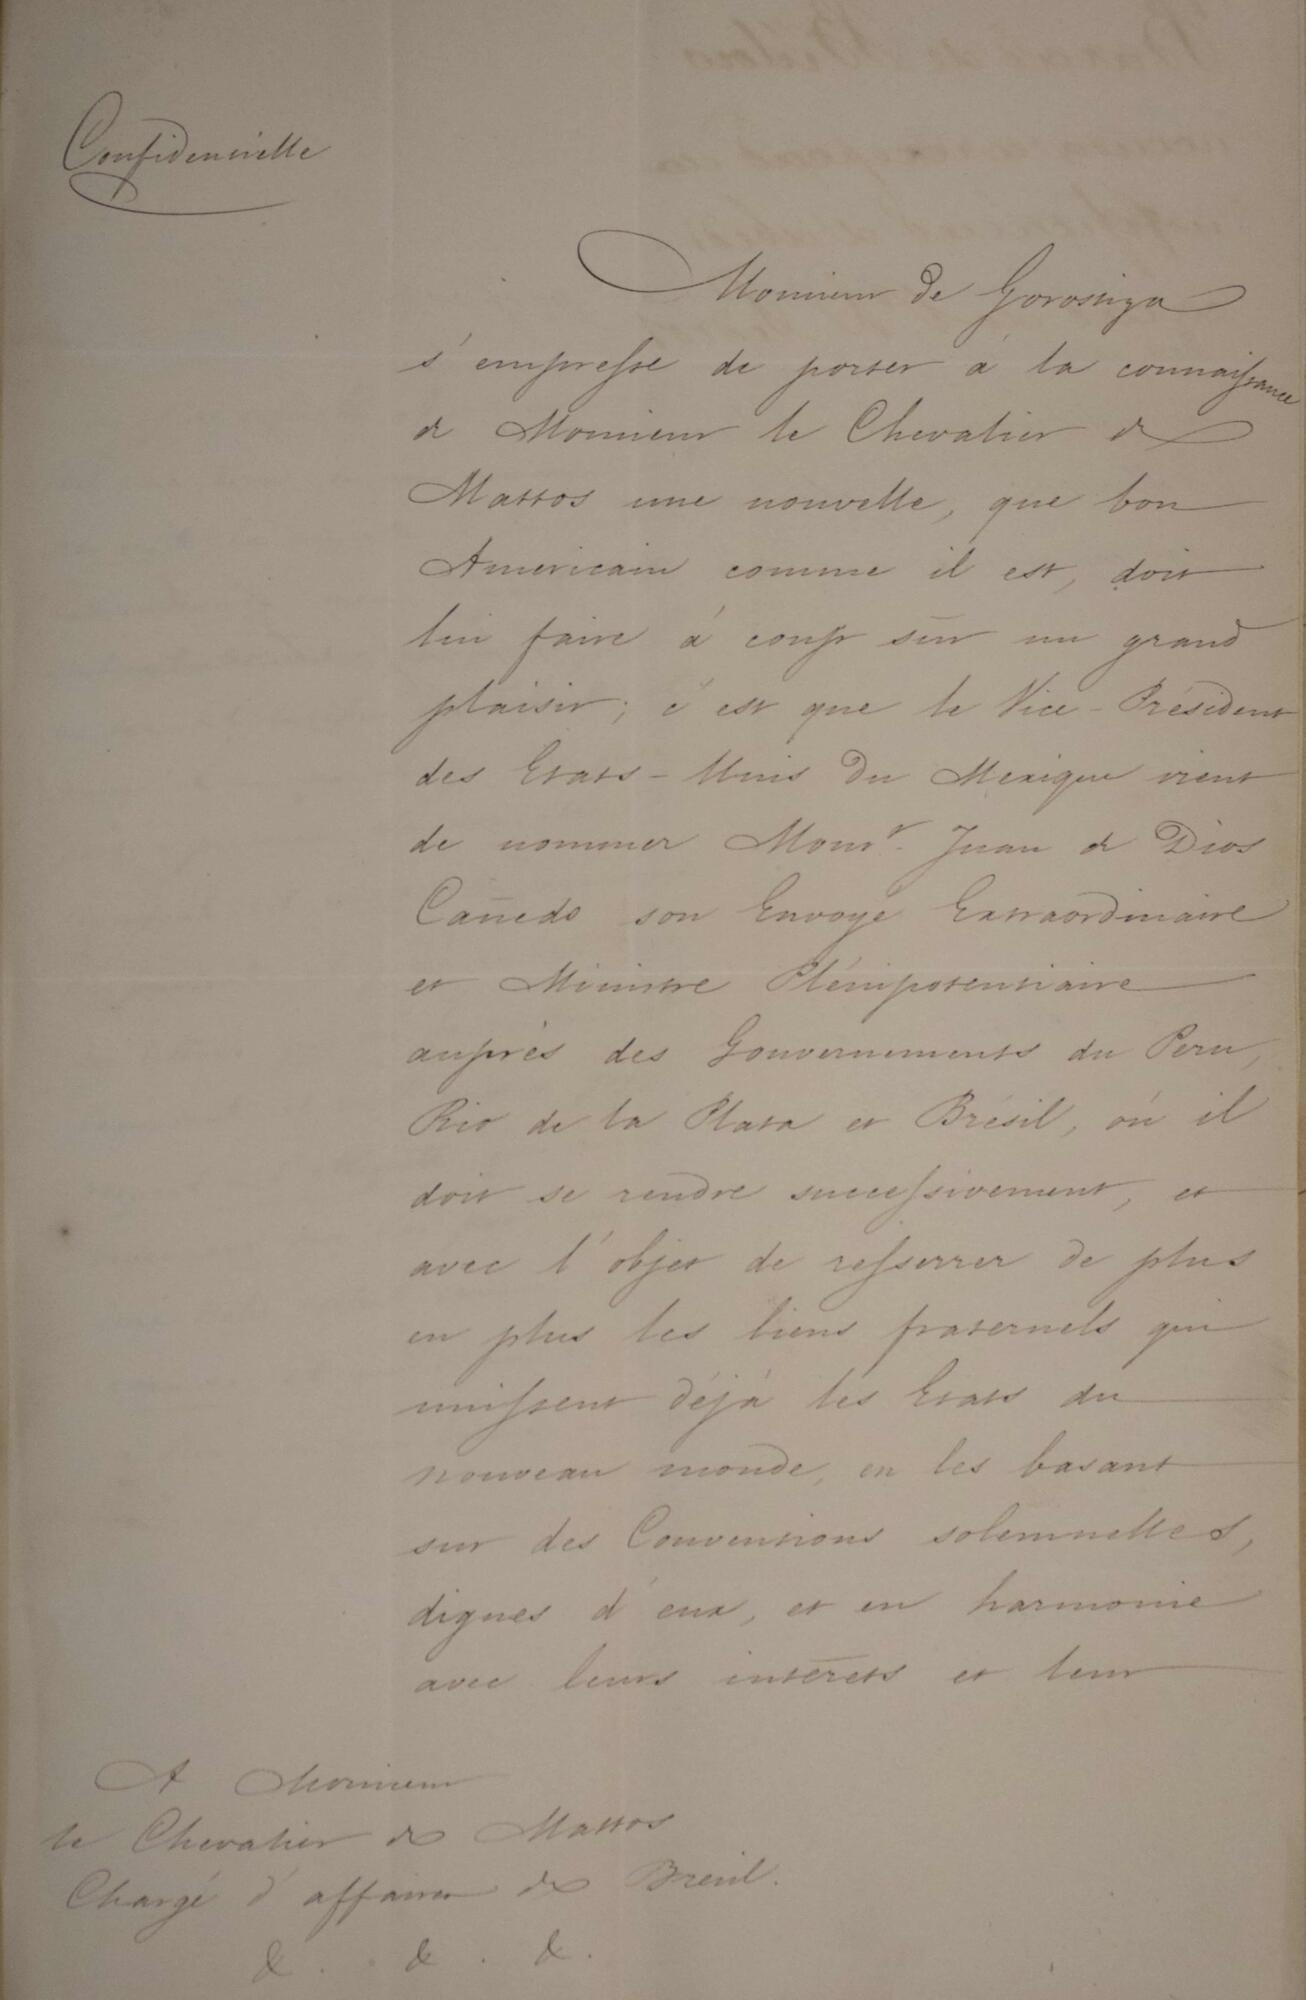 Confidentielle
Monsieur de Gorostiza
s'empresse de porter à la connaissance
de Monsieur le Chevalier de
Mattos une nouvelle, que bon
Américain comme il est, doit
lui faire à coup sûr un grand
plaisir; c'est que le Vice-Président
des Etats-Unis du Mexique vient
de nommer Monsr. Juan de Dios
Cañedo son Envoyé Extraordinaire
et Ministre Plénipotentiaire
auprès des Gouvernements du Peru,
Rio de la Plata et Brésil, où il
doit se rendre successivement, et
avec l'objet de resserrer de plus
en plus les liens fraternels qui
unissent déjà les Etats du
nouveau monde, en les basant
sur des Conventions solemnelles,
dignes d'eux, et en harmonie
avec leurs intérêts et leur
A Monsieur
le Chevalier de Mattos
Chargé d'affaires de Brésil.
&. &. &.